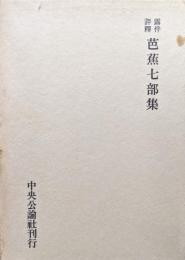 露伴
評釋
芭蕉七部集
中央公論社刊行